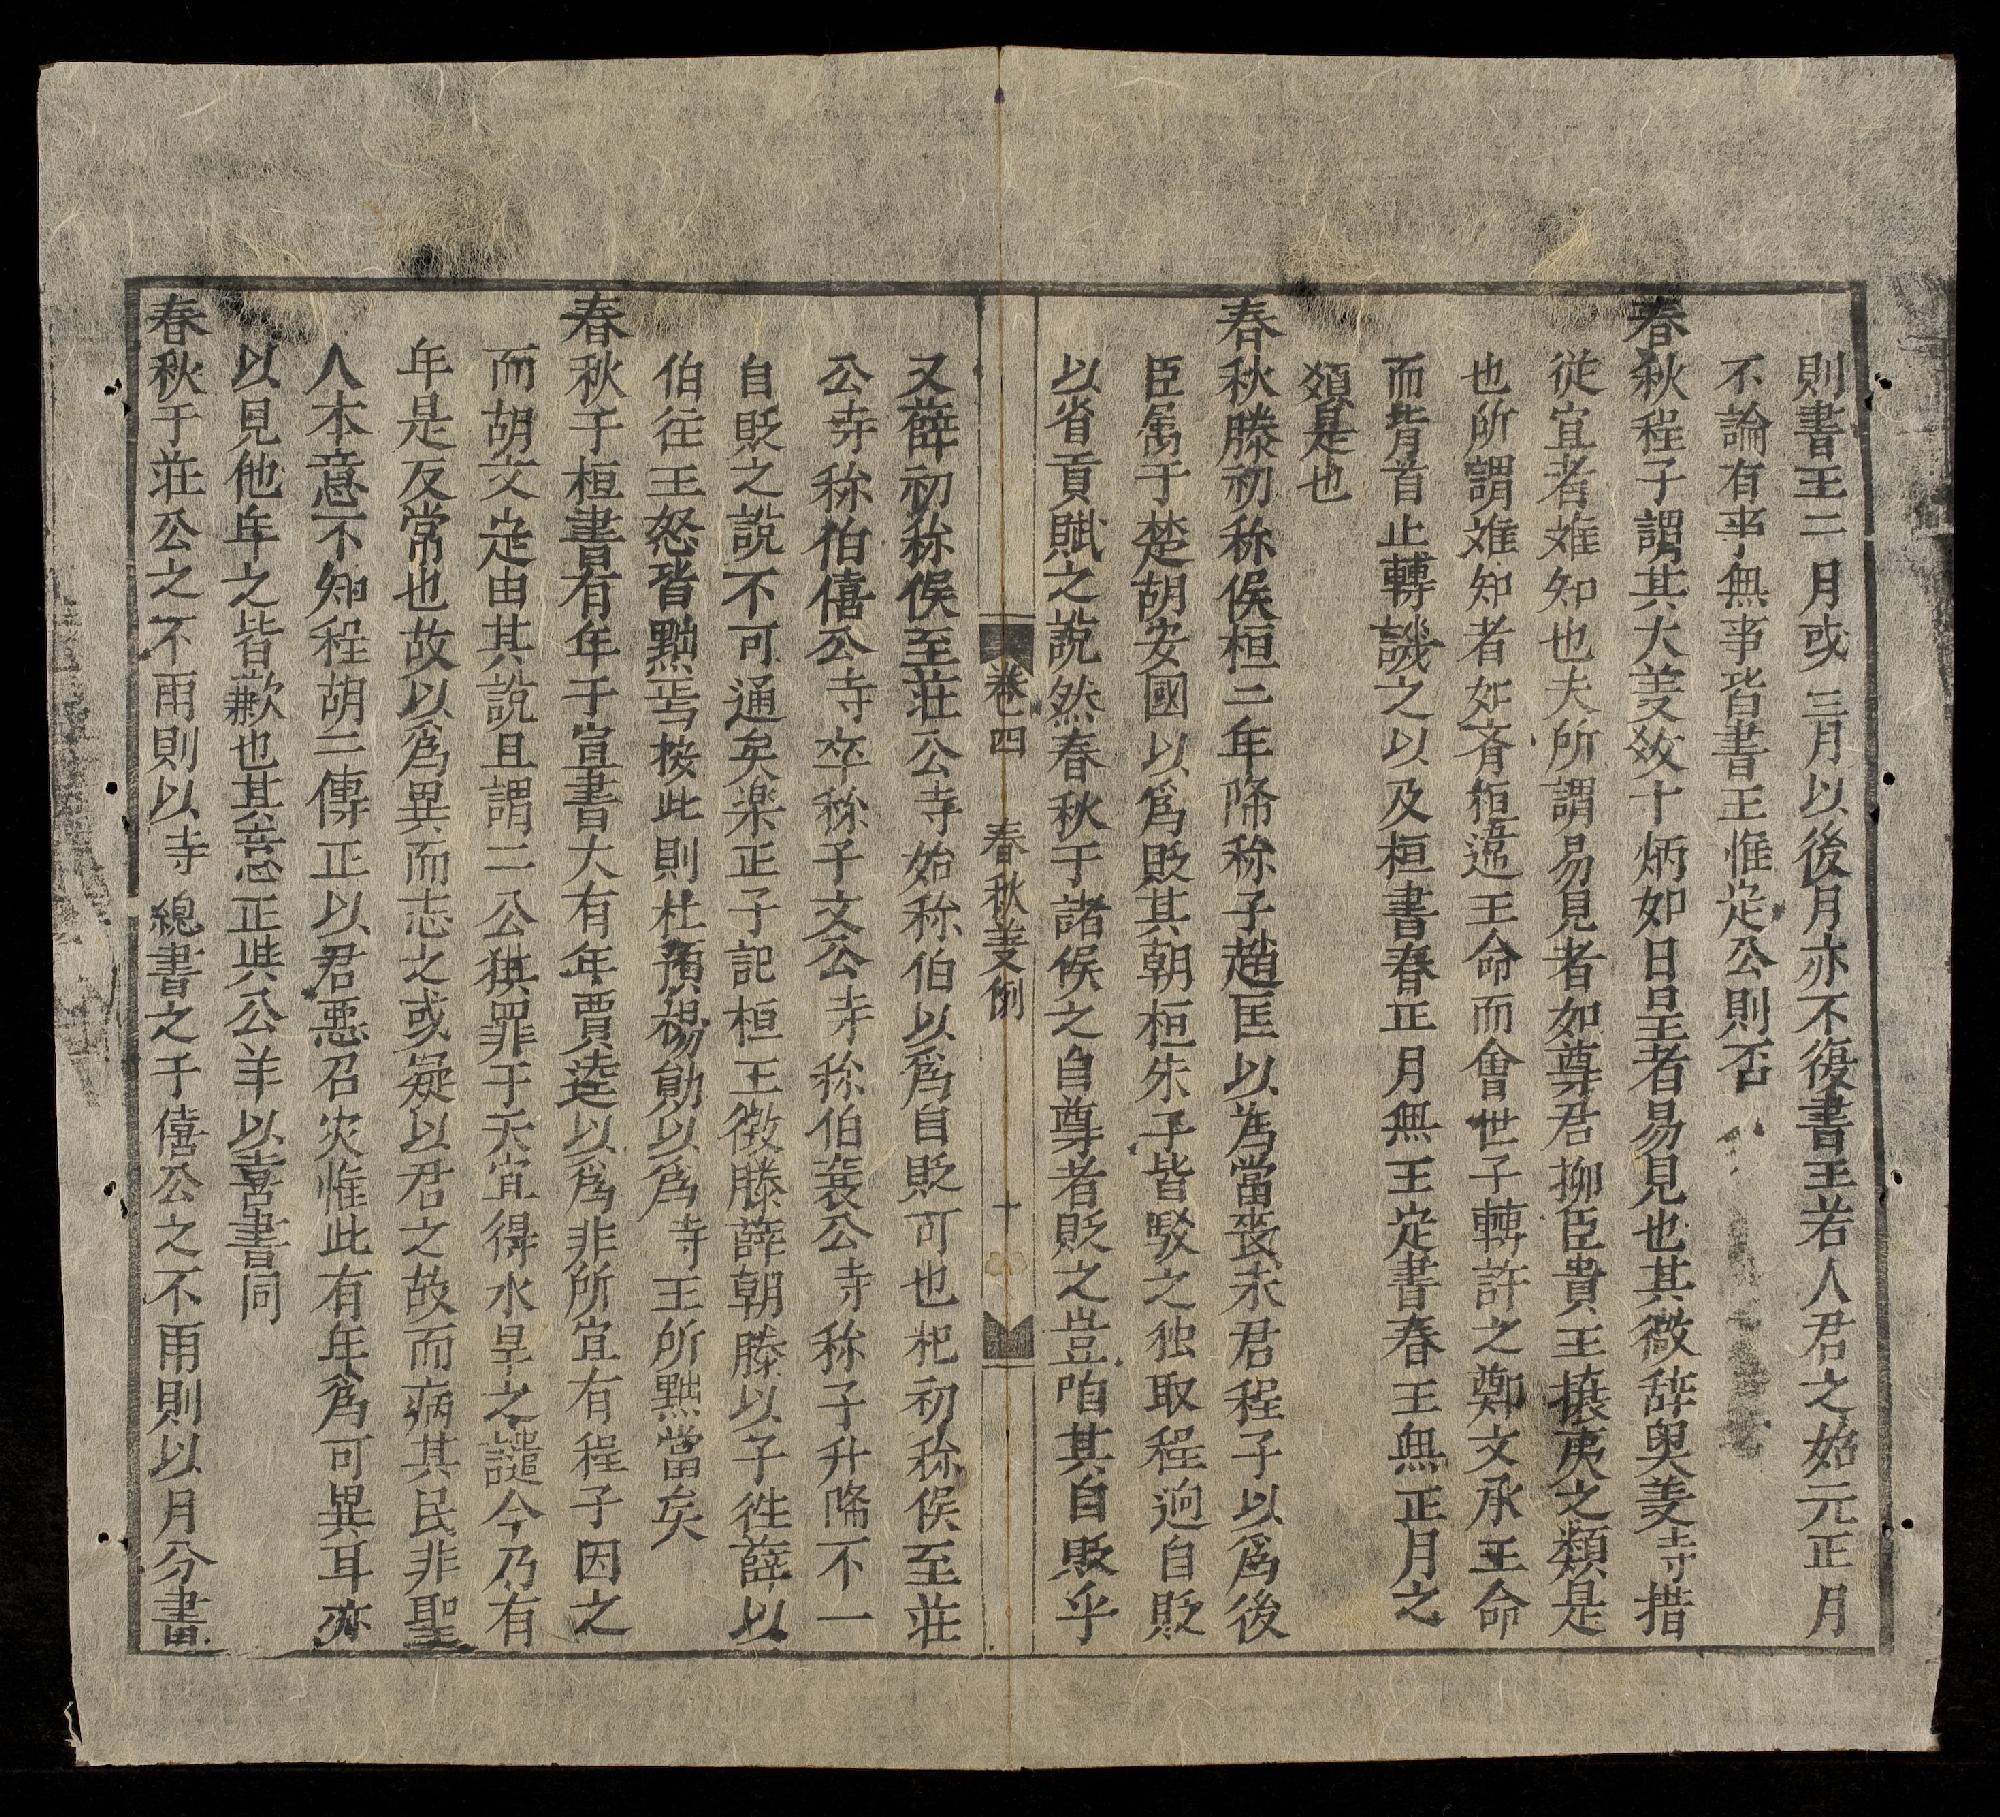 則書王二月或三月以後月亦不復書王若人君之始元正月
不論有事無事皆書王惟定公則否
春秋程子謂其大义数十炳如日星者易見也其微辞奥义寺措
従宜者难知也夫所謂易見者如尊君抑臣貴王攘夷之類是
也所謂难知者如斉桓違王命而會世子轉許之鄭文承王命
而背首止轉譏之以及桓書春正月無王定書春王無正月之
類是也
春秋滕初称侯桓二年降称子趙匡以為當喪未君程子以為後
臣属于楚胡安國以為貶其朝桓朱子皆駁之独取程逈自貶
以省貢賦之說然春秋于諸侯之自尊者貶之豈咱其自貶乎
卷四 春秋义例 十
又薛初称侯至荘公寺始称伯以為自貶可也杞初称侯至荘
公寺称伯僖公寺卒称子文公寺称伯襄公寺称子升降不一
自貶之説不可通矣楽正子記桓王徴滕薛朝滕以子徃薛以
伯往王怒皆黜焉按此則杜預楊勛以為寺王所黜當矣
春秋于桓書有年于宣書大有年賈逵以為非所宜有程子因之
而胡文定由其説且謂二公獲罪于天宜得水旱之譴今乃有
年是反常也故以為異而志之或疑以君之故而病其民非聖
人本意不知程胡二傳正以君悪召灾惟此有年為可異耳亦
以見他年之皆歉也其意正與公羊以喜書同
春秋于荘公之不雨則以寺總書之于僖公之不雨則以月分書